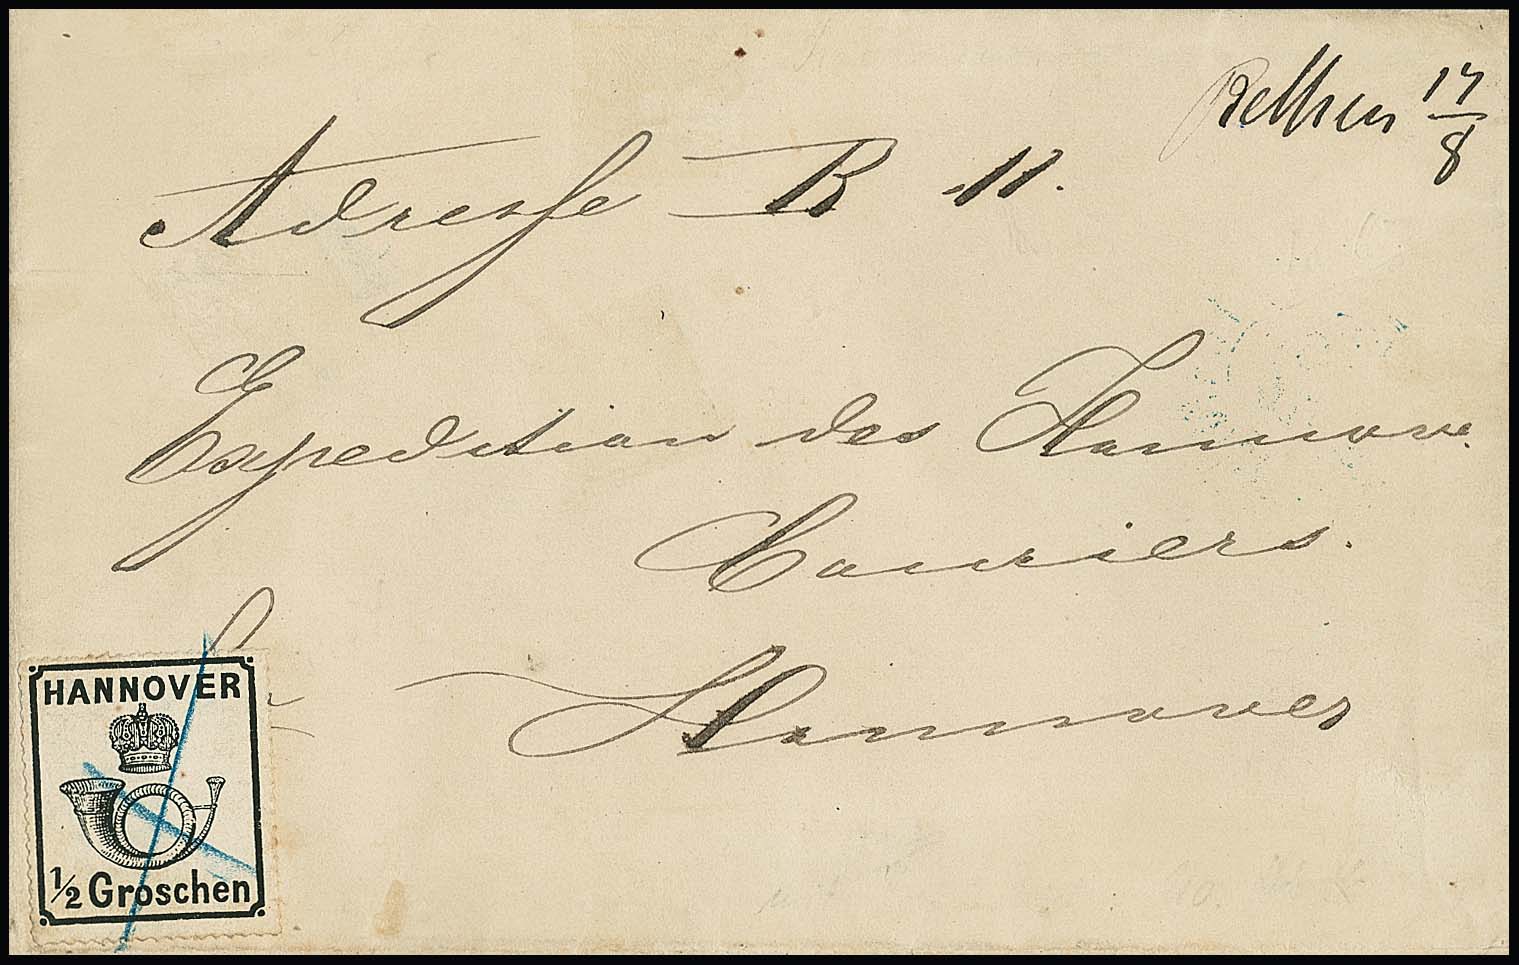 Rethem 17/8
Adresse B 11.
Expedition des Hannov.
Couriers.
Hannover
HANNOVER
1/2 Groschen